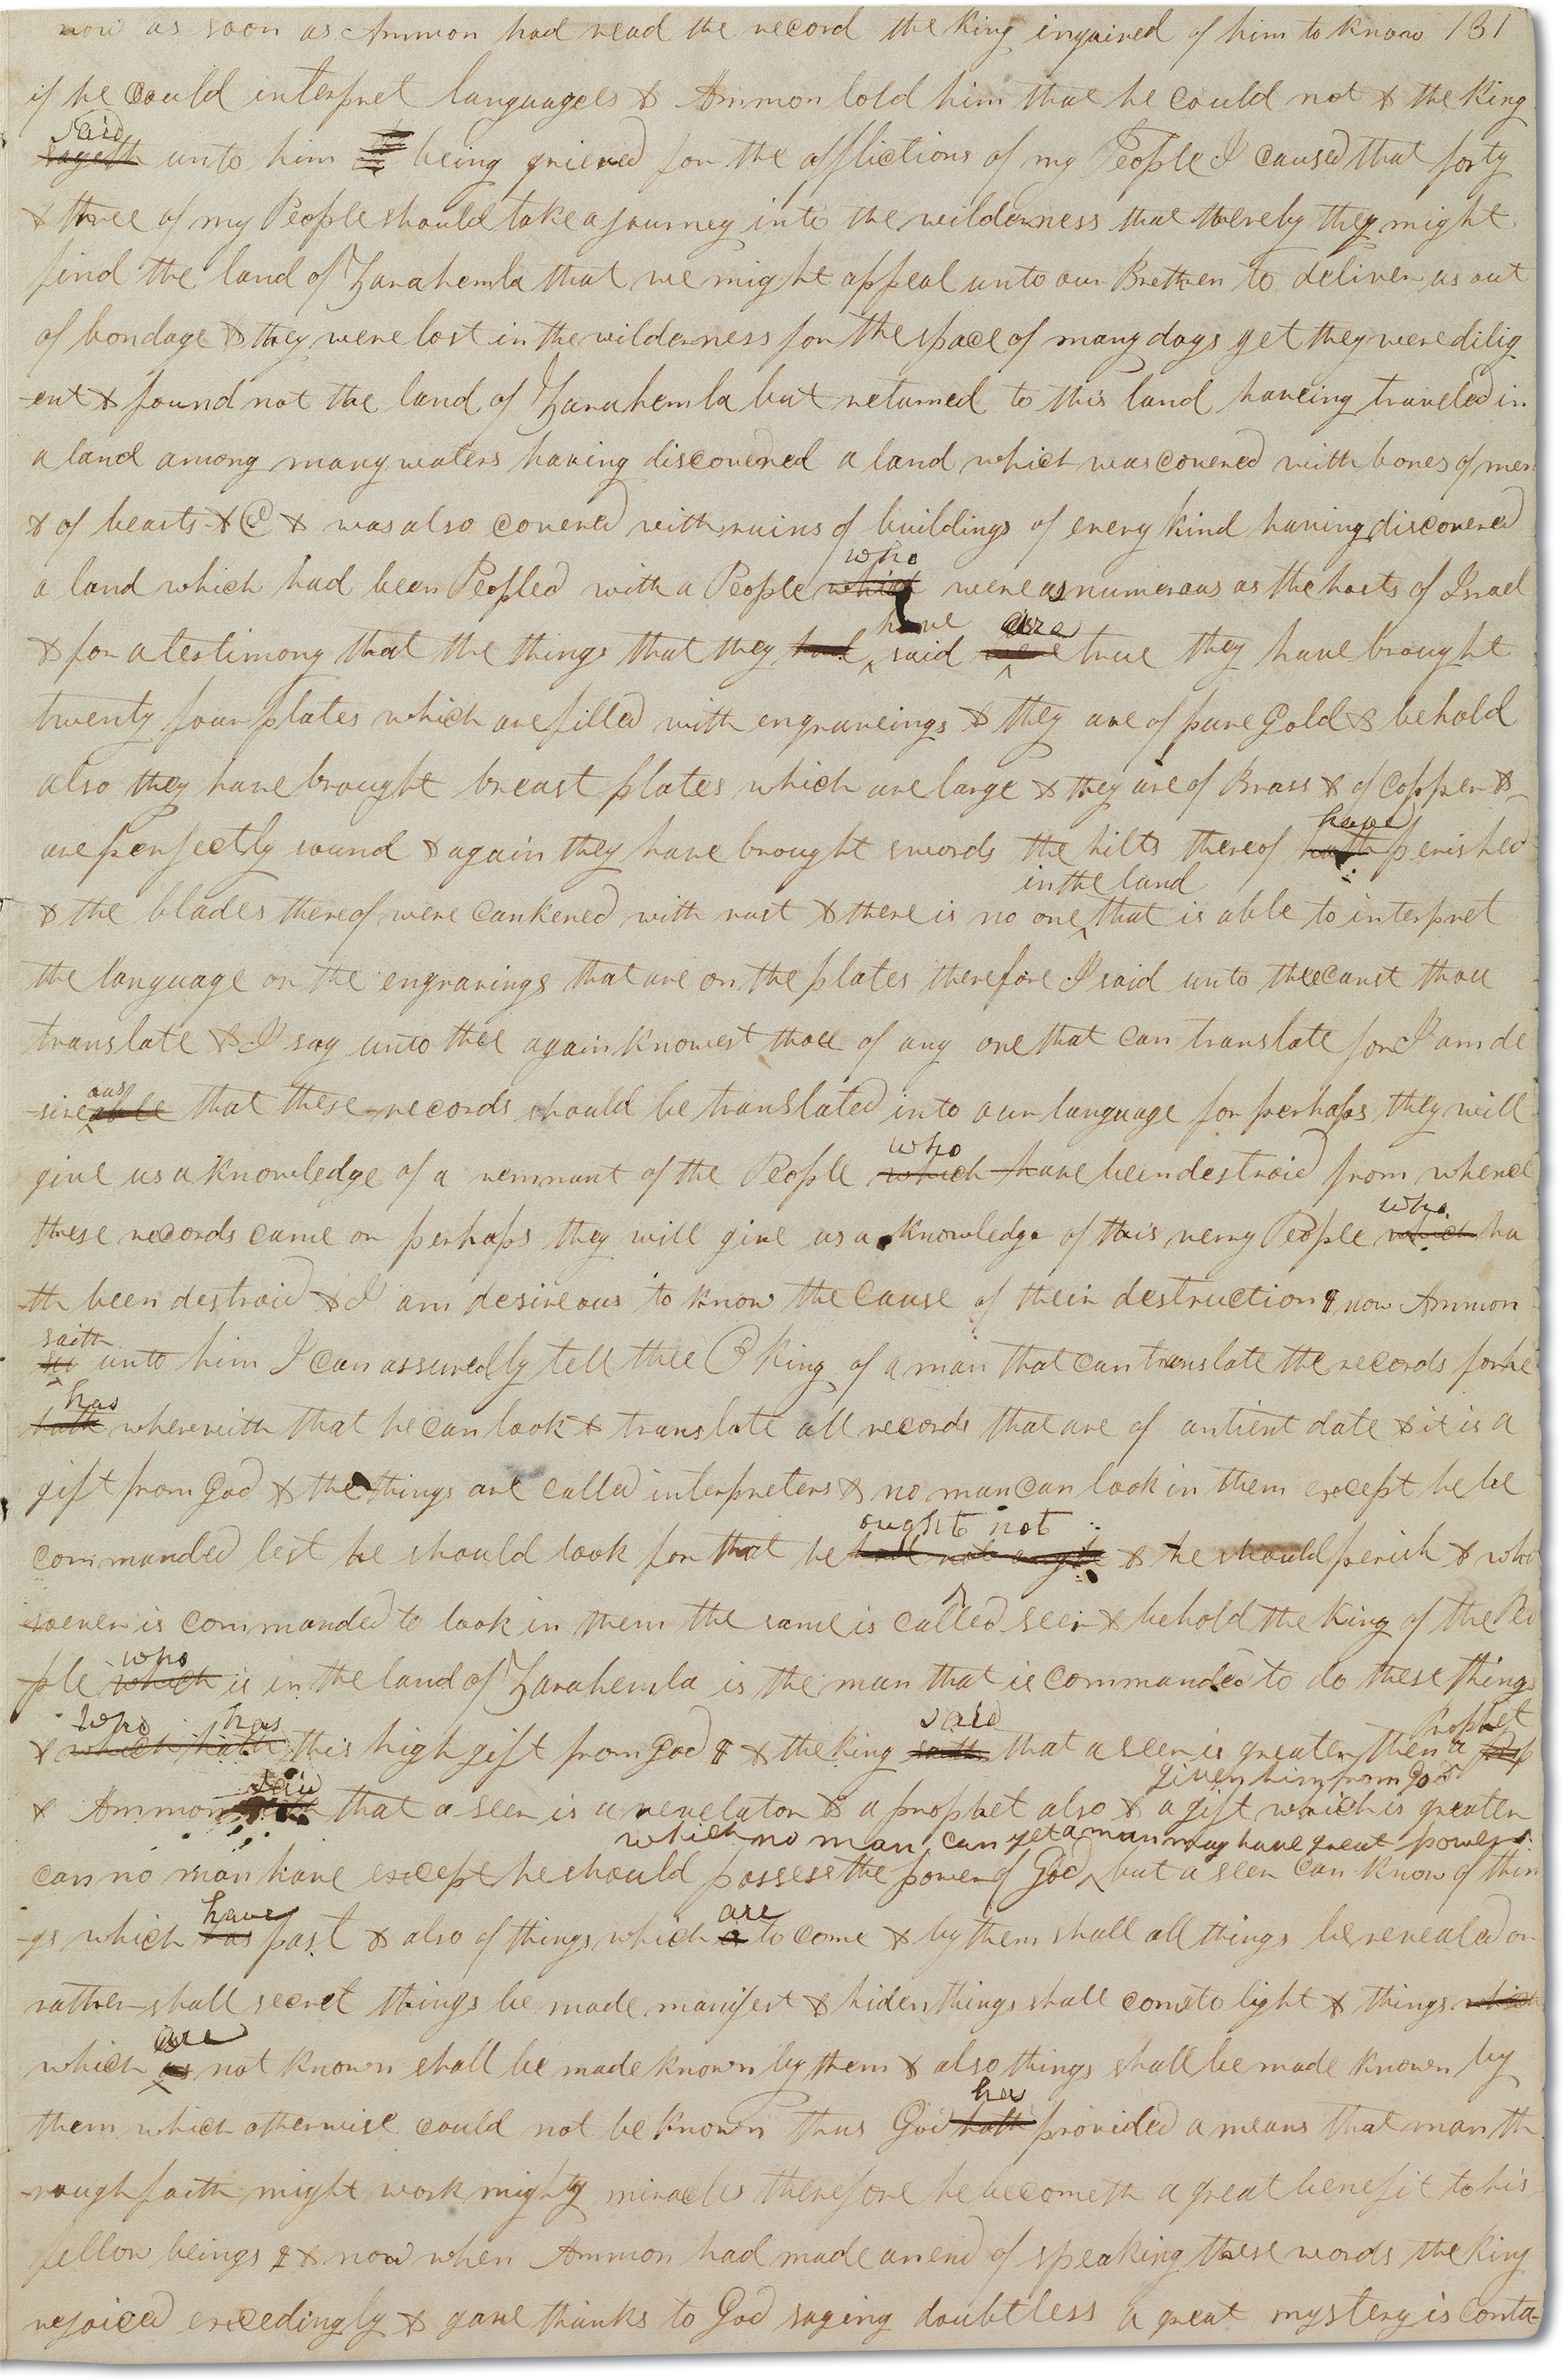 now as soon as Ammon had read the record the king inquired of him to know 131
if he could interpret languages & Ammon told him that he could not & the king
said
sayeth unto him being grieved for the afflictions of my People I caused that forty
& three of my People should take a journey into the wilderness that thereby they might
find the land of Zarahemla that we might appeal unto our Brethren to deliver us out
of bondage & they were lost in the wilderness for the space of many days yet they were dilig
-ent & found not the land of Zarahemla but returned to this land haveing traveled in
a land among many waters having discovered a land which was covered with bones of men
& of beasts & C & was also covered with ruins of buildings of every kind having discovered
who
a land which had been Peopled with a People which were as numerous as the hosts of Israel
have are
& for a testimony that the things that they had said were true they have brought
twenty four plates which are filled with engraveings & they are of pure Gold & behold
also they have brought breast plates which are large & they are of Brass & of Copper &
have
are perfectly sound & again they have brought swords the hilts thereof hath perished
in the land
& the blades thereof were cankered with rust & there is no one that is able to interpret
the language or the engravings that are on the plates therefore I said unto thee canst thou
translate & I say unto thee again knowest thou of any one that can translate for I am de
ous
-sireable that these records should be translated into our language for perhaps they will
who
give us a knowledge of a remnant of the People which have been destroid from whence
who
these records came or perhaps they will give us a knowledge of this very People which ha
-th been destroid & I am desireous to know the cause of their destruction & now Ammon
saith
unto him I can assuredly tell thee O king of a man that can translate the records for he
has
hath wherewith that he can look & translate all records that are of antient date & it is a
gift from God & the things are called interpreters & no man can look in them except he be
ought not
commanded lest he should look for that he hath not ought & he should perish & who
soever is commanded to look in them the same is called seer & behold the King of the Peo
who
ple which is in the land of Zarahemla is the man that is commanded to do these things
who has said Prophet
& which hath this high gift from God & & the king saith that a seer is greater then a Prop
said given him from God
& Ammon saith that a seer is a revelator & a prophet also & a gift which is greater
which no man can yet a man may have great power
can no man have except he should possess the power of God but a seer can know of thin
have are
-gs which has past & also of things which is to come & by them shall all things be revealed or
rather shall secret things be made manifest & hiden things shall come to light & things which
are
which is not known shall be made known by them & also things shall be made known by
has
them which otherwise could not be known thus God hath provided a means that man th
-rough faith might work mighty miracles therefore he becometh a great benefit to his
fellow beings & & now when Ammon had made an end of speaking these words the king
rejoiced exceedingly & gave thanks to God saying doubtless a great mystery is conta